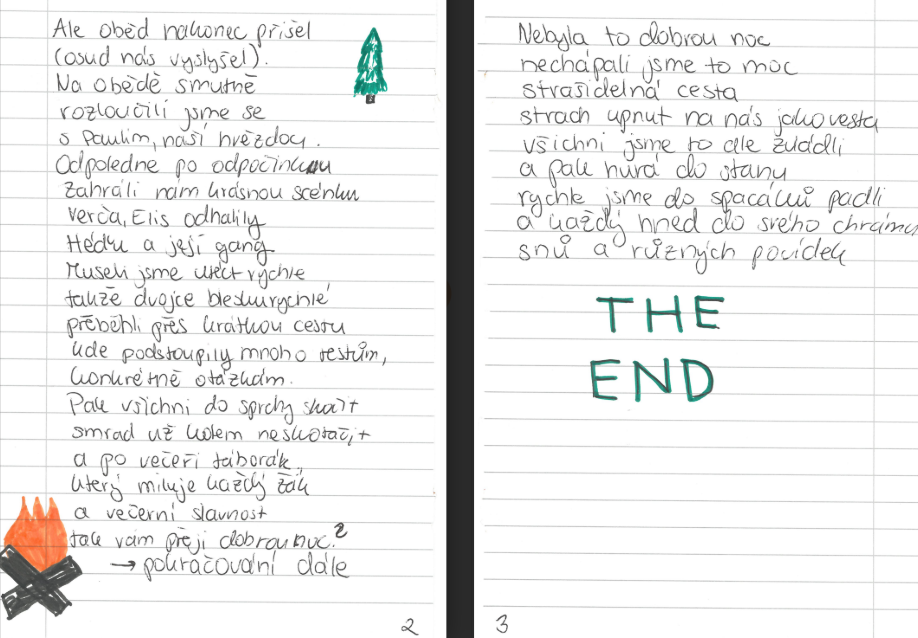 Ale oběd nakonec přišel
(osud nás vyslyšel).
Na obědě smutně
rozloučili jsme se
s Paulim, naší hvězdou.
Odpoledne po odpočinku
zahráli nám krásnou scénku
Verča, Elis odhalily
Hédku a její gang
Museli jsme utéct rychle
takže dvojce bleskurychle
přeběhli přes krátkou cestu
kde podstoupily mnoho testům,
konkrétně otázkám.
Pak všichni do sprchy skočit
smrad už kolem neskotačit
a po večeři táborák,
který miluje každý žák
a večerní slavnost
tak vám přeji dobrou noc.²
→ pokračování dále
2
Nebyla to dobrou noc
nechápali jsme to moc
strašidelná cesta
strach upnut na nás jako vesta
všichni jsme to ale zvládli
a pak hurá do stanu
rychle jsme do spacáků padli
a každý hned do svého chrámu
snů a různých povídek
THE
END
3